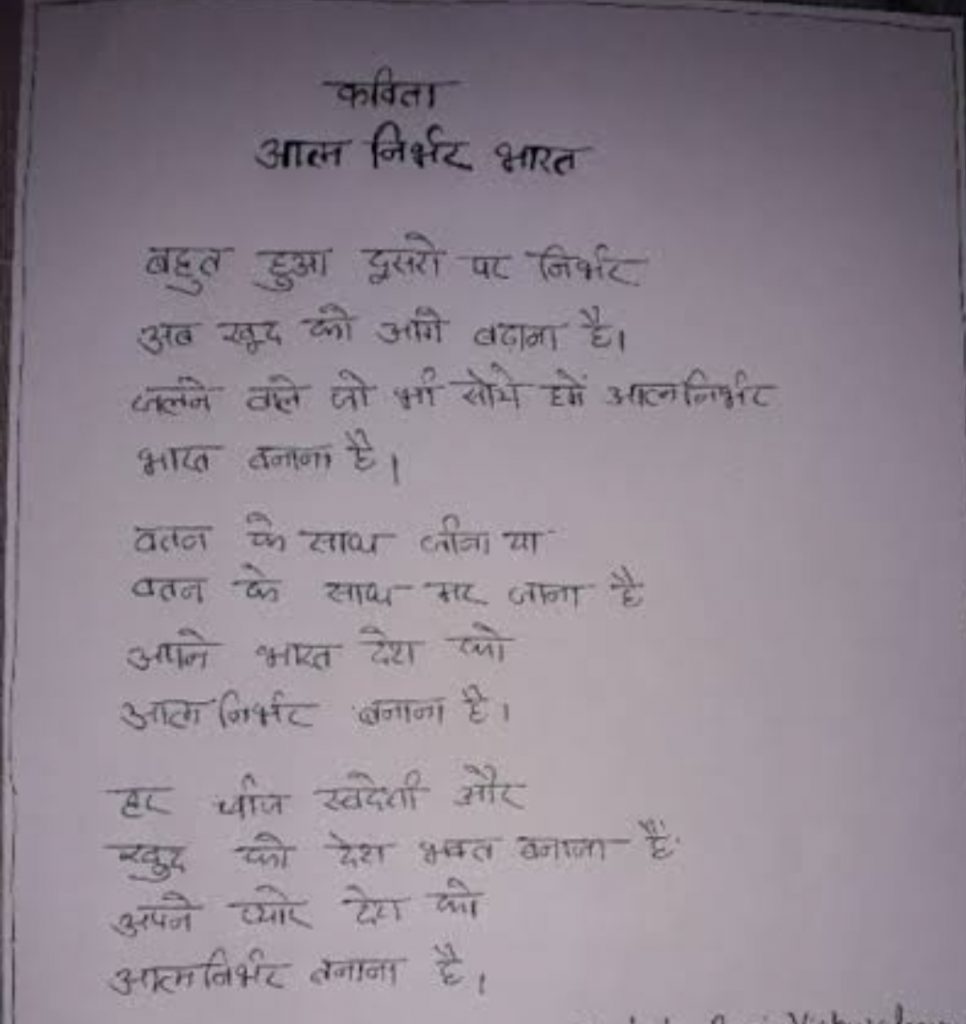 कविता
आत्म निर्भर भारत
बहुत हुआ दूसरो पर निर्भर
अब खुद को आगे बढ़ाना है।
जलने वाले जो भी सोचे हमें आत्मनिर्भर
भारत बनाना है।
वतन के साथ जीना या
वतन के साथ मर जाना है
अपने भारत देश को
आत्मनिर्भर बनाना है।
हर चीज स्वदेशी और
खुद को देश भक्त बनाना है
अपने प्यारे देश को
आत्मनिर्भर बनाना है।